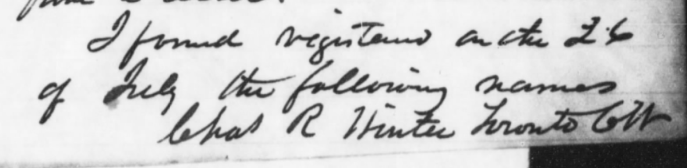 I found registered on the 26
of July the following names
Chas R Winter Toronto CW